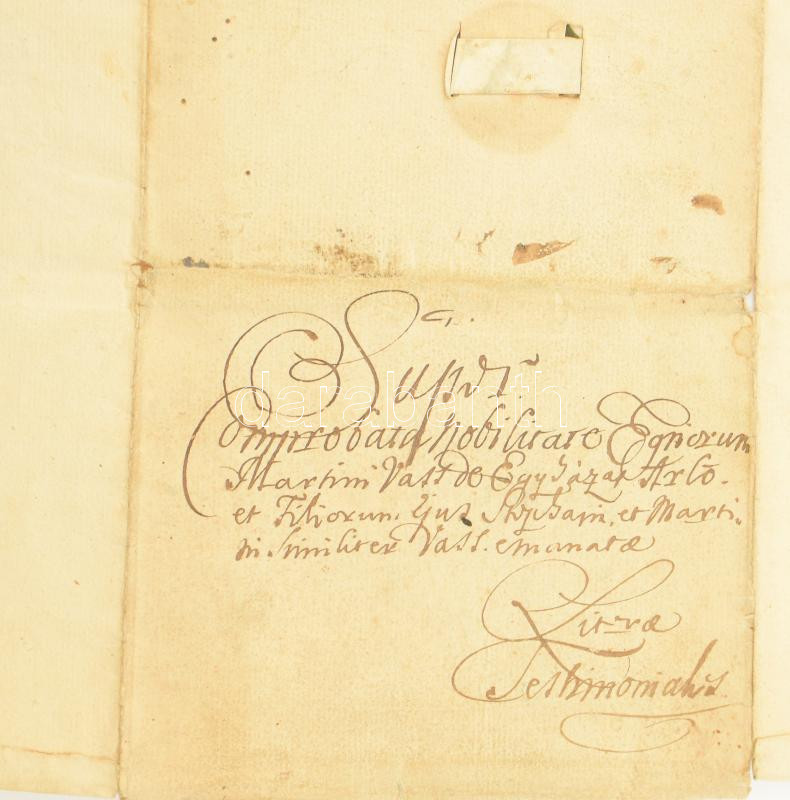 Super
Comprobata Nobilitate Egriorum
Martini Vass de Egyházas Arló.
et Filiorum Ejus Stephani, et Marti-
ni Similiter Vass. emanatæ
Litræ
Testimoniales
darabanth